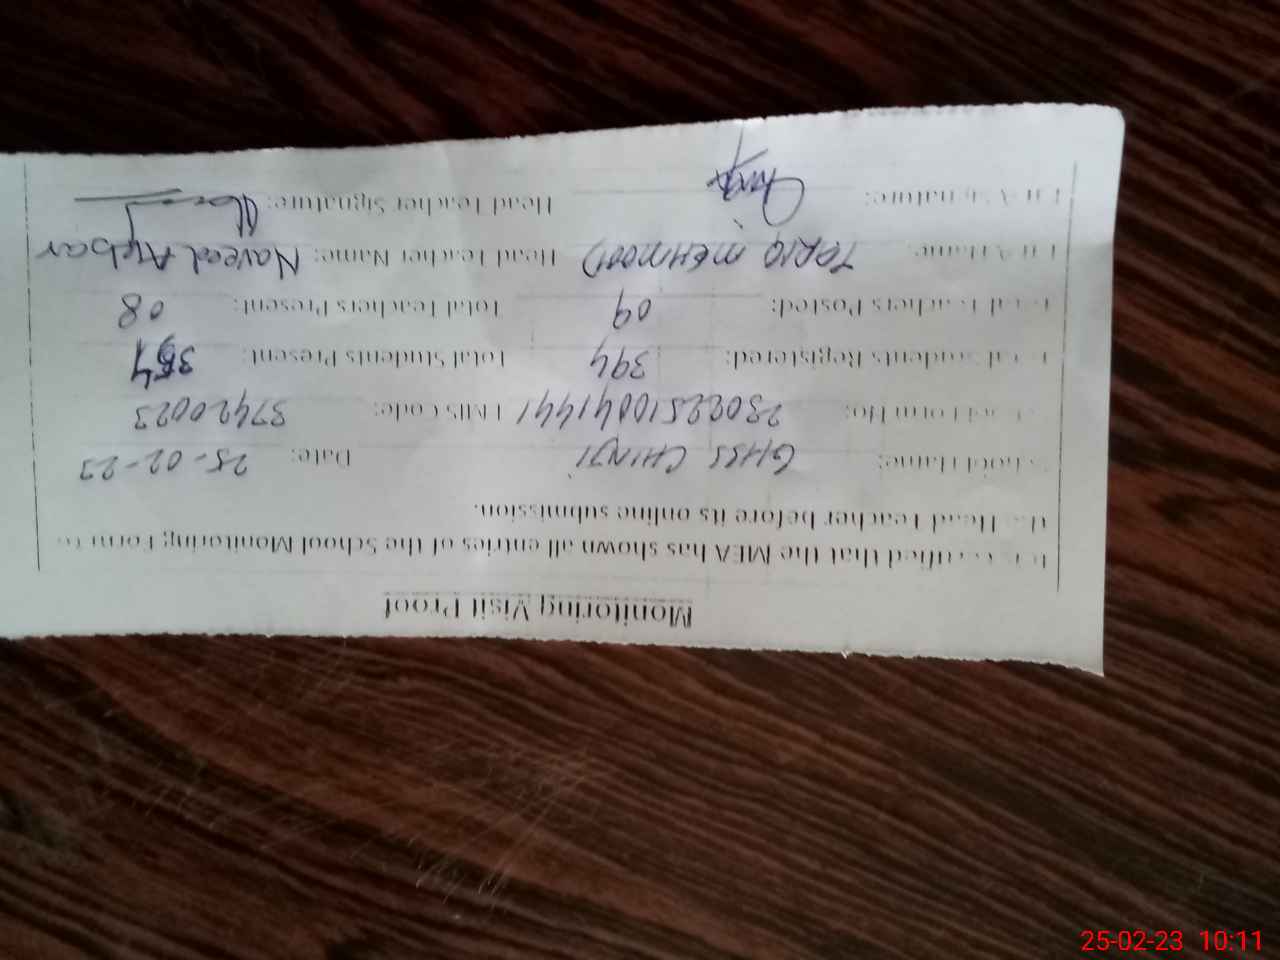 Monitoring Visit Proof
It is certified that the MEA has shown all entries of the School Monitoring Form to
the Head Teacher before its online submission.
School Name: GHSS CHINJI Date: 25-02-23
Form No: 23022510041441 EMIS Code: 37420023
Total Students Registered: 394 Total Students Present: 354
Total Teachers Posted: 09 Total Teachers Present: 08
Name: TARIQ MEHMOOD Head Teacher Name: Naveed Akbar
Signature: Head Teacher Signature:
25-02-23 10:11